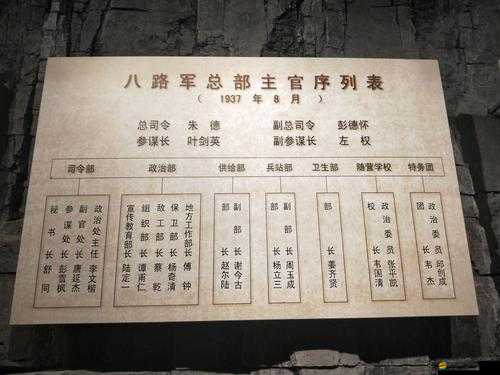 八路军总部主官序列表
（ 1937 年 8 月 ）
总司令 朱 德 副总司令 彭德怀
参谋长 叶剑英 副参谋长 左 权
司令部 政治部 供给部 兵站部 卫生部 随营学校 特务团
秘书长舒同
参谋处长彭雪枫
副官处长唐延杰
政治处主任李文楷
宣传教育部长陆定一
组织部长谭甫仁
敌工部长蔡乾
保卫部长杨奇清
地方工作部长傅钟
部长赵尔陆
副部长谢今古
部长杨立三
副部长周玉成
部长姜齐贤
校长韦国清
政治委员张平凯
团长韦杰
政治委员邱创成